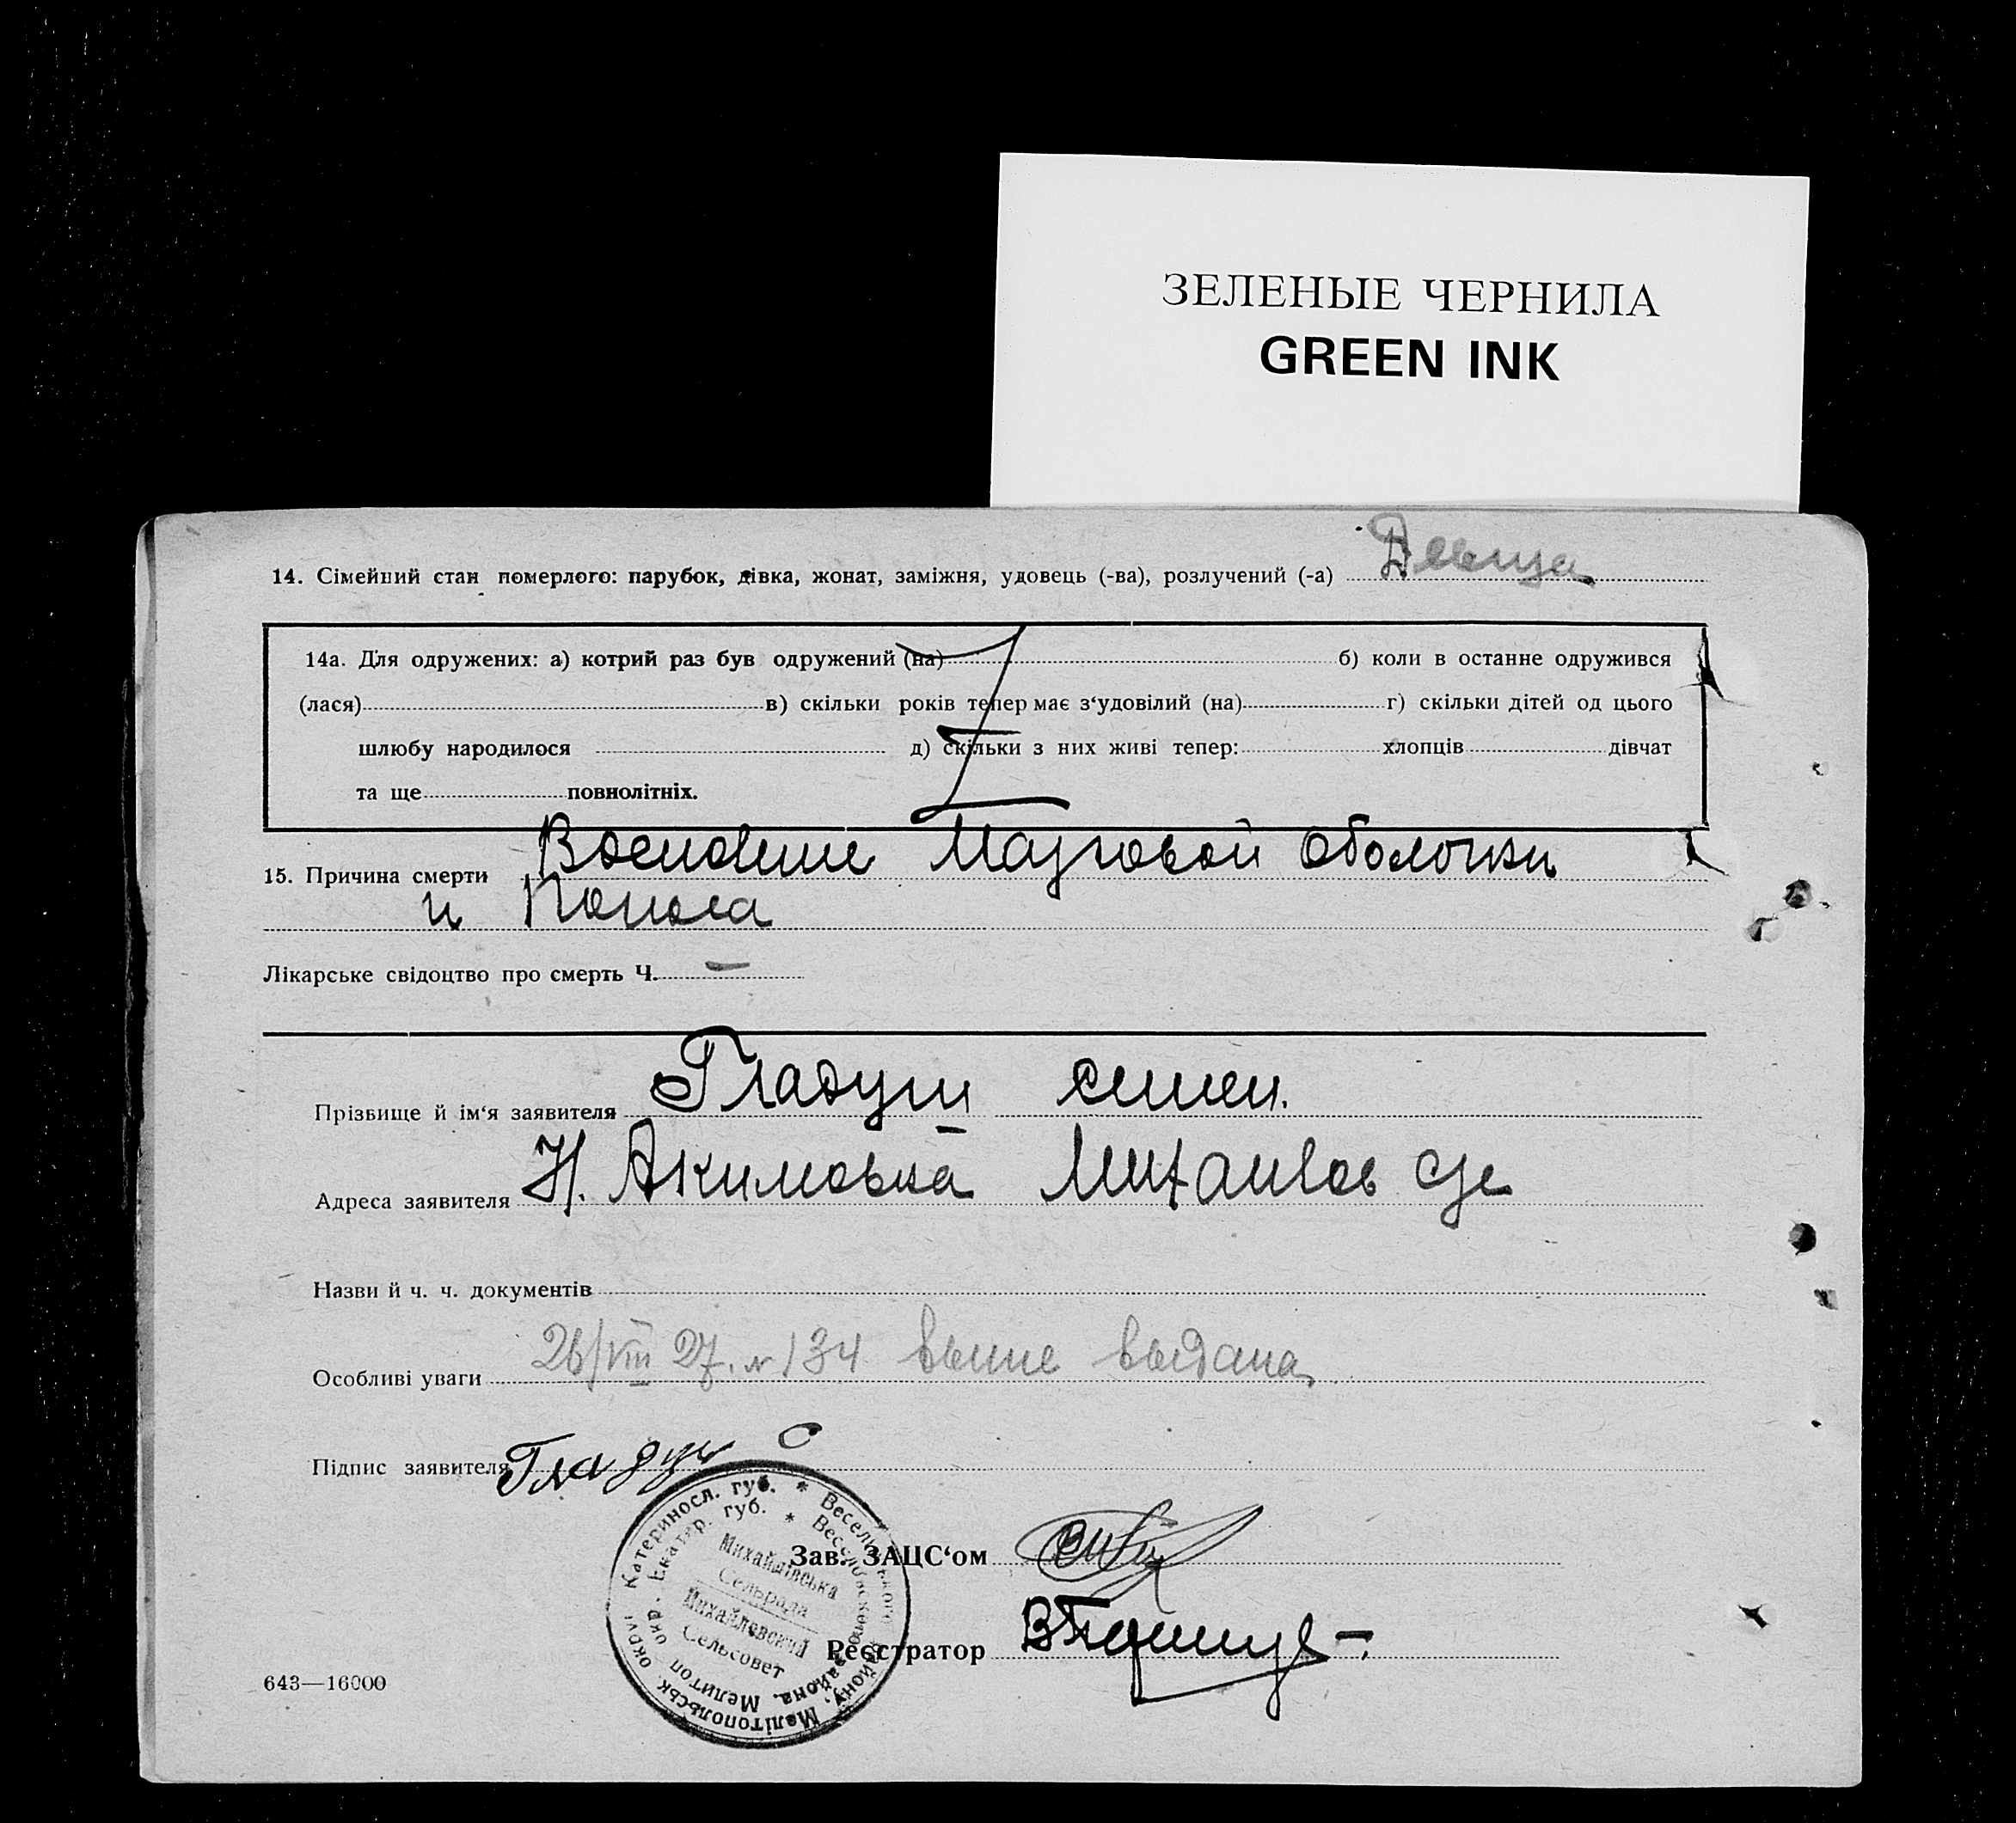 ЗЕЛЕНЫЕ ЧЕРНИЛА
GREEN INK
14. Сімейний стан померлого: парубок, дівка, жонат, заміжня, удовець (-ва), розлучений (-а) Девица
14а. Для одружених: а) котрий раз був одружений (на) б) коли в останне одружився
(лася) в) скільки років тепер має з‘удовілий (на) г) скільки дітей од цього
шлюбу народилося д) скільки з них живі тепер: хлопців дівчат
та ще повнолітніх.
15. Причина смерти Мазговой оболочки
и Поноса
Лікарське свідоцтво про смерть Ч. —
Прізвище й ім‘я заявителя Гладуш семен.
Адреса заявителя Н. Акимовка Михайлов с/с
Назви й ч. ч. документів
Особливі уваги 26/VIII 27. № 134 выдана
Підпис заявителя Гладуш С
Катериносл. губ. * Весельського району, Мелітопольськ. округи
Екатер. губ. * Веселовского района, Мелитоп. окр.
Михайлівська
Сельрада
Михайловский
Сельсовет
Зав. ЗАЦС‘ом
Реєстратор
643—16000